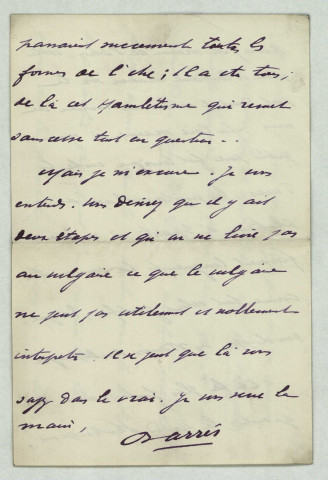 successivement toutes les
formes de l'être ; il a été tous ;
de là cet Hamletisme qui remet
sans cesse tout en question ..
Mais je m'excuse. Je vous
entends. Vous dites que il y a
deux étapes et qu'on ne livre pas
au vulgaire ce que le vulgaire
ne peut pas utilement et noblement
interpréter. Il se peut que là vous
soyez dans le vrai. Je vous serre la
main,
Barrès